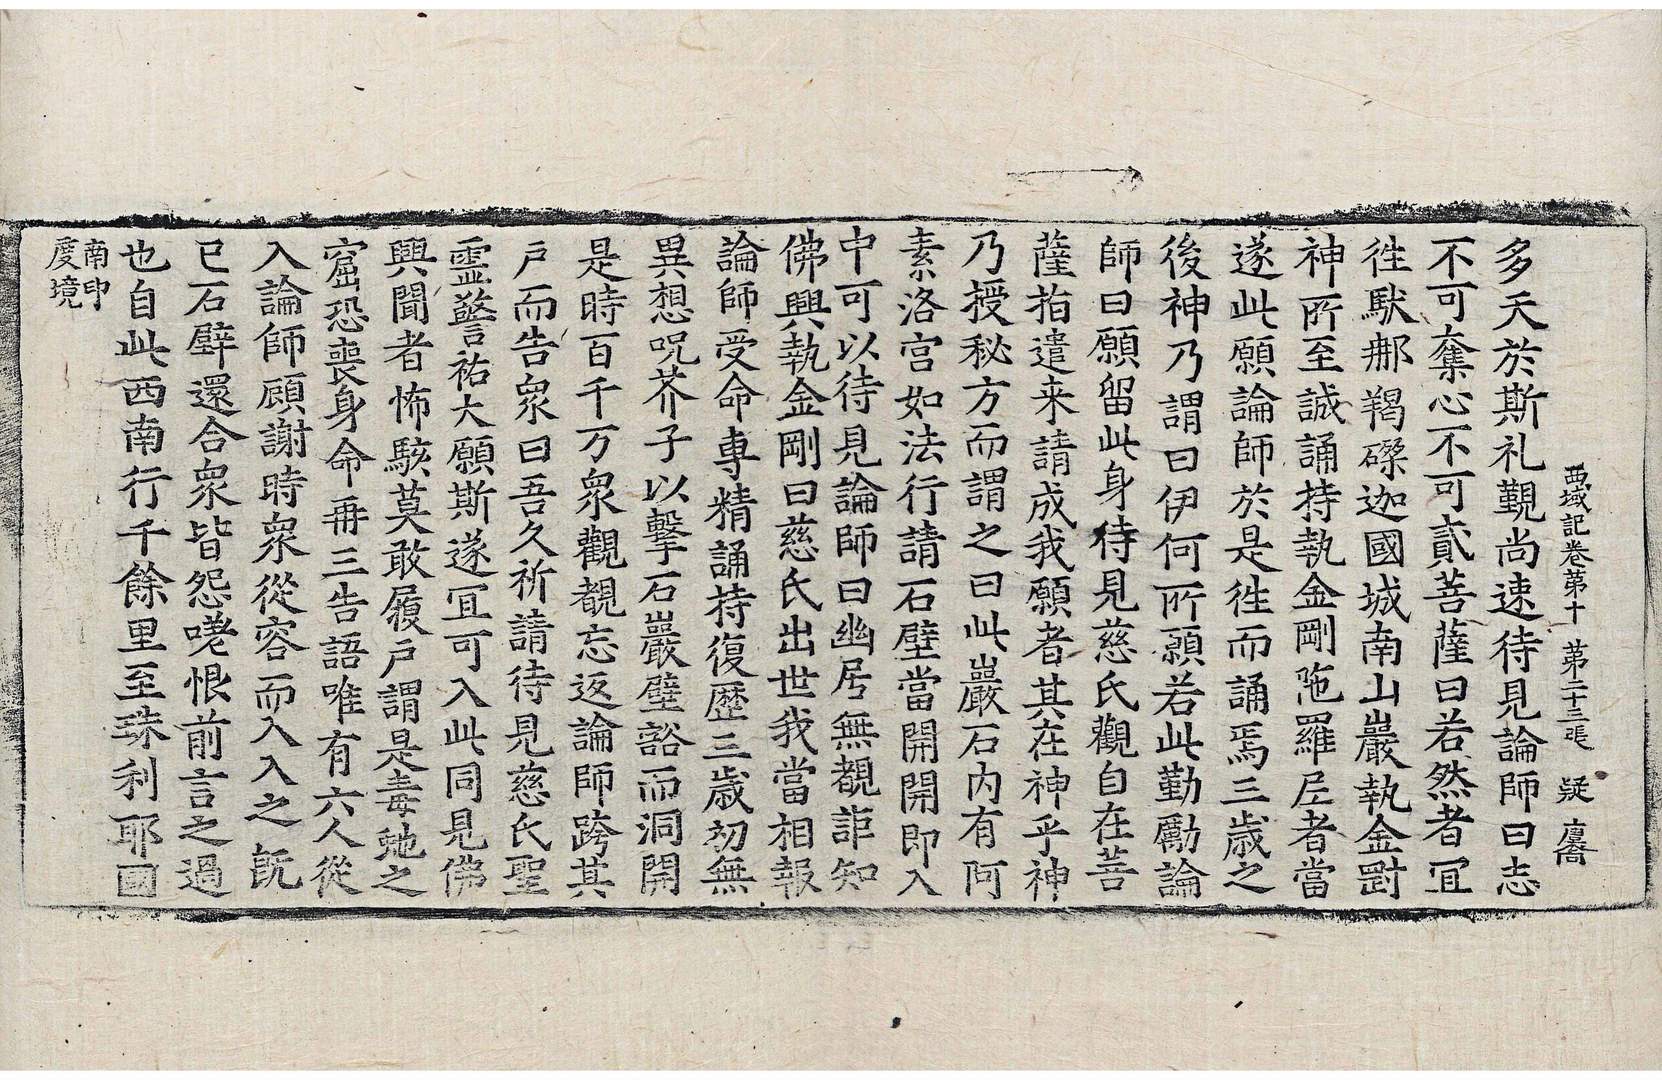 西域記卷第十 第二十三張 疑 廬喬
多天於斯礼覲尚速待見論師曰志
不可奪心不可貳菩薩曰若然者冝
徃馱那羯磔迦國城南山巖執金剛
神所至誠誦持執金剛陁羅尼者當
遂此願論師於是徃而誦焉三歲之
後神乃謂曰伊何所願若此勤勵論
師曰願留此身待見慈氏觀自在菩
薩指遣来請成我願者其在神乎神
乃授秘方而謂之曰此巖石内有阿
素洛宫如法行請石壁當開開即入
中可以待見論師曰幽居無覩詎知
佛興執金剛曰慈氏出世我當相報
論師受命專精誦持復歷三歲初無
異想呪芥子以擊石巖壁豁而洞開
是時百千万衆觀覩忘返論師跨其
戸而告衆曰吾久祈請待見慈氏聖
靈警祐大願斯遂冝可入此同見佛
興聞者怖駭莫敢履戸謂是毒虵之
窟恐喪身命再三告語唯有六人從
入論師顧謝時衆從容而入入之旣
已石壁還合衆皆怨嗟恨前言之過
也自此西南行千餘里至珠利耶國
南印
度境